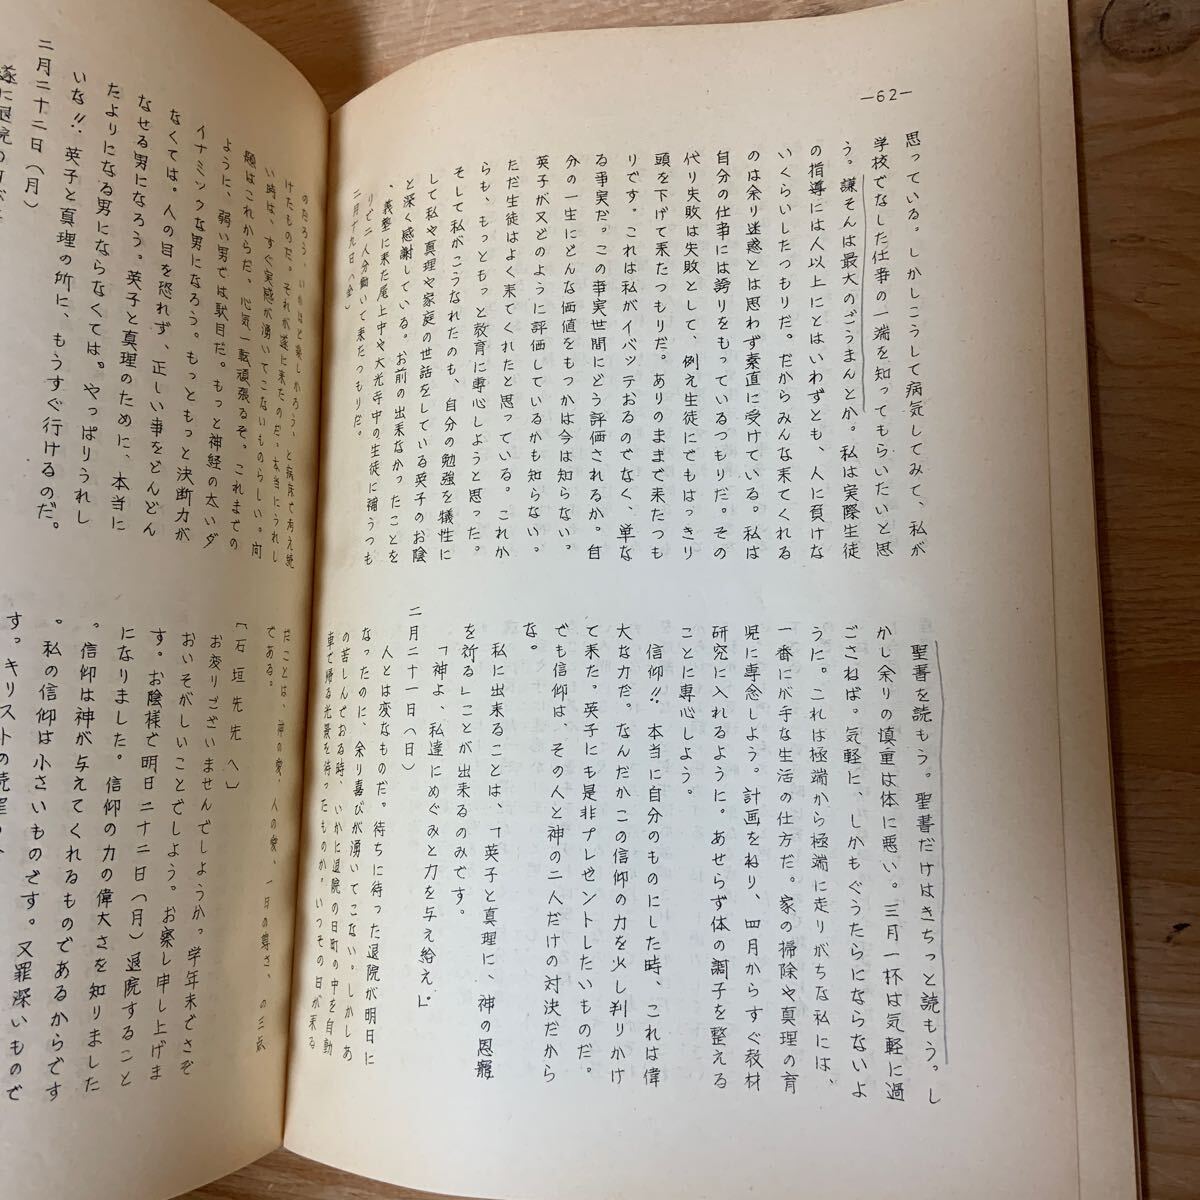 —62—
思っている。しかしこうして病気してみて、私が
学校でなした仕事の一端を知ってもらいたいと思
う。謙そんは最大のごうまんとか。私は実際生徒
の指導には人以上にとはいわずとも、人に負けな
いくらいしたつもりだ。だからみんな来てくれる
のは余り迷惑とは思わず素直に受けている。私は
自分の仕事には誇りをもっているつもりだ。その
代り失敗は失敗として、例え生徒にでもはっきり
頭を下げて来たつもりだ。ありのままで来たつも
りです。これは私がイバッテおるのでなく、単な
る事実だ。この事実世間にどう評価されるか。自
分の一生にどんな価値をもつかは今は知らない。
英子が又どのように評価しているかも知らない。
ただ生徒はよく来てくれたと思っている。これか
らも、もっともっと教育に専心しようと思った。
そして私がこうなれたのも、自分の勉強を犠性に
して私や真理や家庭の世話をしている英子のお陰
と深く感謝している。お前の出来なかったことを
、義塾に来た尾上中や大光寺中の生徒に補うつも
りで二人分働いて来たつもりだ。
二月十九日(金)
聖書を読もう。聖書だけはきちっと読もう。し
かし余りの慎重は体に悪い。三月一杯は気軽に過
ごさねば。気軽に、しかもぐうたらにならないよ
うに。これは極端から極端に走りがちな私には、
一番にが手な生活の仕方だ。家の掃除や真理の育
児に専念しよう。計画をねり、四月からすぐ教材
研究に入れるように。あせらず体の調子を整える
ことに専心しよう。
信仰!!本当に自分のものにした時、これは偉
大な力だ。なんだかこの信仰の力を少し判りかけ
て来た。英子にも是非プレゼントしたいものだ。
でも信仰は、その人と神の二人だけの対決だから
な。
私に出来ることは、「英子と真理に、神の恩寵
を祈る」ことが出来るのみです。
「神よ、私達にめぐみと力を与え給え」。
二月二十一日(日)
人とは変なものだ。待ちに待った退院が明日に
なったのに、余り喜びが湧いてこない。しかしあ
の苦しんでおる時、いかに退院の日町の中を自動
車で帰る光景を待ったものか。いつその日が来る
のだろう、いかほど楽しかろう、と病床で考え続
けたものだ。それが遂に来たのだ。本当にうれし
い時は、すぐ実感が湧いてこないものらしい。問
題はこれからだ。心気一転頑張るぞ。これまでの
ように、弱い男では駄目だ。もっと神経の太いダ
イナミックな男になろう。もっともっと決断力が
なくては。人の目を恐れず、正しい事をどんどん
なせる男になろう。英子と真理のために、本当に
たよりになる男にならなくては。やっぱりうれし
いな!!英子と真理の所に、もうすぐ行けるのだ。
二月二十二日(月)
遂に退院の日が
だことは、神の愛、人の愛、一日の尊さ、の三点
である。
「石垣先先へ」
お変りございませんでしようか。学年末でさぞ
おいそがしいことでしよう。お察し申し上げま
す。お陰様で明日二十二日(月)退院すること
になりました。信仰の力の偉大さを知りました
。信仰は神が与えてくれるものであるからです
。私の信仰は小さいものです。又罪深いもので
す。キリストの贖罪